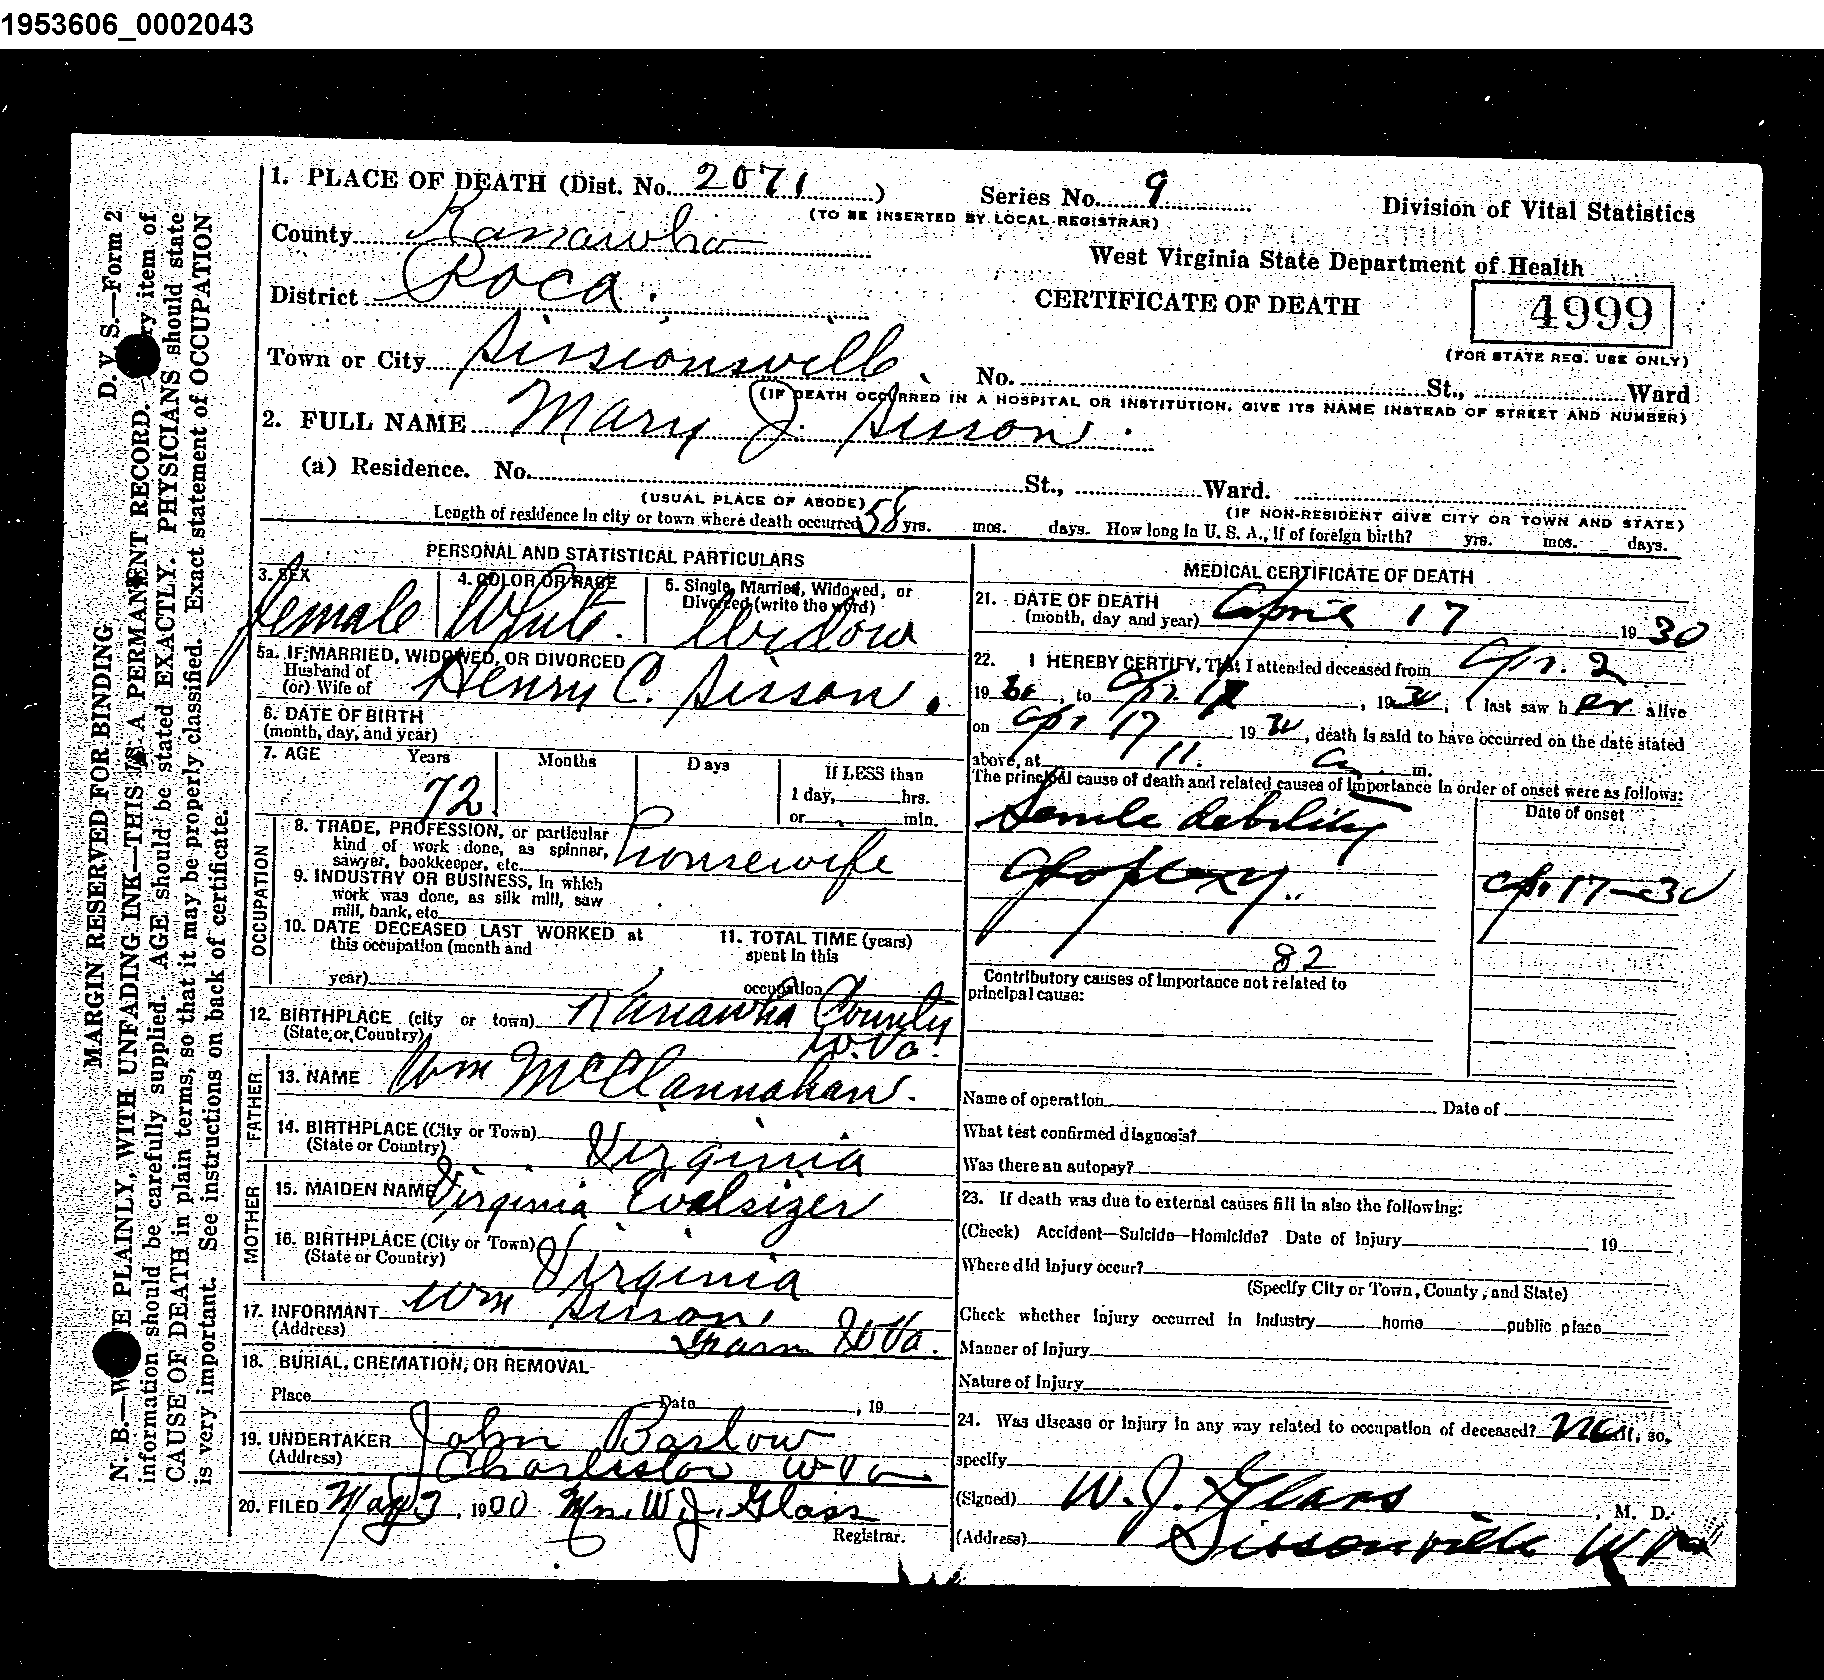 1953606_0002043
1. PLACE OF DEATH (Dist. No. 2071 )
Series No. 9
(TO BE INSERTED BY LOCAL REGISTRAR)
Division of Vital Statistics
County Kanawha
West Virginia State Department of Health
District Poca.
CERTIFICATE OF DEATH
4999
(FOR STATE REG. USE ONLY)
Town or City Sissionsville.
No. St., Ward
(IF DEATH OCCURRED IN A HOSPITAL OR INSTITUTION, GIVE ITS NAME INSTEAD OF STREET AND NUMBER)
2. FULL NAME Mary J. Sisson.
(a) Residence. No. St., Ward.
(USUAL PLACE OF ABODE)
(IF NON-RESIDENT GIVE CITY OR TOWN AND STATE)
Length of residence in city or town where death occurred 58 yrs. mos. days. How long in U. S. A., if of foreign birth? yrs. mos. days.
PERSONAL AND STATISTICAL PARTICULARS
3. SEX
female
4. COLOR OR RACE
White.
5. Single, Married, Widowed, or
Divorced (write the word)
Widow
5a. IF MARRIED, WIDOWED, OR DIVORCED
Husband of
(or) Wife of Henry C. Sisson.
6. DATE OF BIRTH
(month, day, and year)
7. AGE Years Months Days If LESS than
72
1 day, hrs.
or min.
OCCUPATION
8. TRADE, PROFESSION, or particular
kind of work done, as spinner,
sawyer, bookkeeper, etc. housewife
9. INDUSTRY OR BUSINESS, in which
work was done, as silk mill, saw
mill, bank, etc
10. DATE DECEASED LAST WORKED at
this occupation (month and
year)
11. TOTAL TIME (years)
spent in this
occupation
12. BIRTHPLACE (city or town) Kanawha County
(State or Country) W.Va.
FATHER
13. NAME Wm McClannahan.
14. BIRTHPLACE (City or Town)
(State or Country) Virginia
MOTHER
15. MAIDEN NAME Virginia Evalsizer
16. BIRTHPLACE (City or Town)
(State or Country) Virginia
17. INFORMANT Wm Sisson
(Address) W Va.
18. BURIAL, CREMATION, OR REMOVAL
Place Date , 19
19. UNDERTAKER John Barlow
(Address) Charleston W Va
20. FILED May 3, 1930 W. J. Glass
Registrar.
MEDICAL CERTIFICATE OF DEATH
21. DATE OF DEATH
(month, day and year) April 17 1930
22. I HEREBY CERTIFY, That I attended deceased from Apr. 2
1930, to Apr 17, 1930, I last saw her alive
on Apr 17 1930, death is said to have occurred on the date stated
above, at 11. a. m.
The principal cause of death and related causes of importance in order of onset were as follows:
Date of onset
Senile debility
Apoplexy.. Apr 17-30
82
Contributory causes of importance not related to
principal cause:
Name of operation Date of
What test confirmed diagnosis?
Was there an autopsy?
23. If death was due to external causes fill in also the following:
(Check) Accident—Suicide—Homicide? Date of injury 19
Where did injury occur?
(Specify City or Town, County, and State)
Check whether injury occurred in industry home public place
Manner of injury
Nature of injury
24. Was disease or injury in any way related to occupation of deceased? No If, so,
specify
(Signed) W. J. Glass , M. D.
(Address) Sissonville W Va
D. V. S.—Form 2
MARGIN RESERVED FOR BINDING
N. B.—WRITE PLAINLY, WITH UNFADING INK—THIS IS A PERMANENT RECORD. Every item of
information should be carefully supplied. AGE should be stated EXACTLY. PHYSICIANS should state
CAUSE OF DEATH in plain terms, so that it may be properly classified. Exact statement of OCCUPATION
is very important. See instructions on back of certificate.